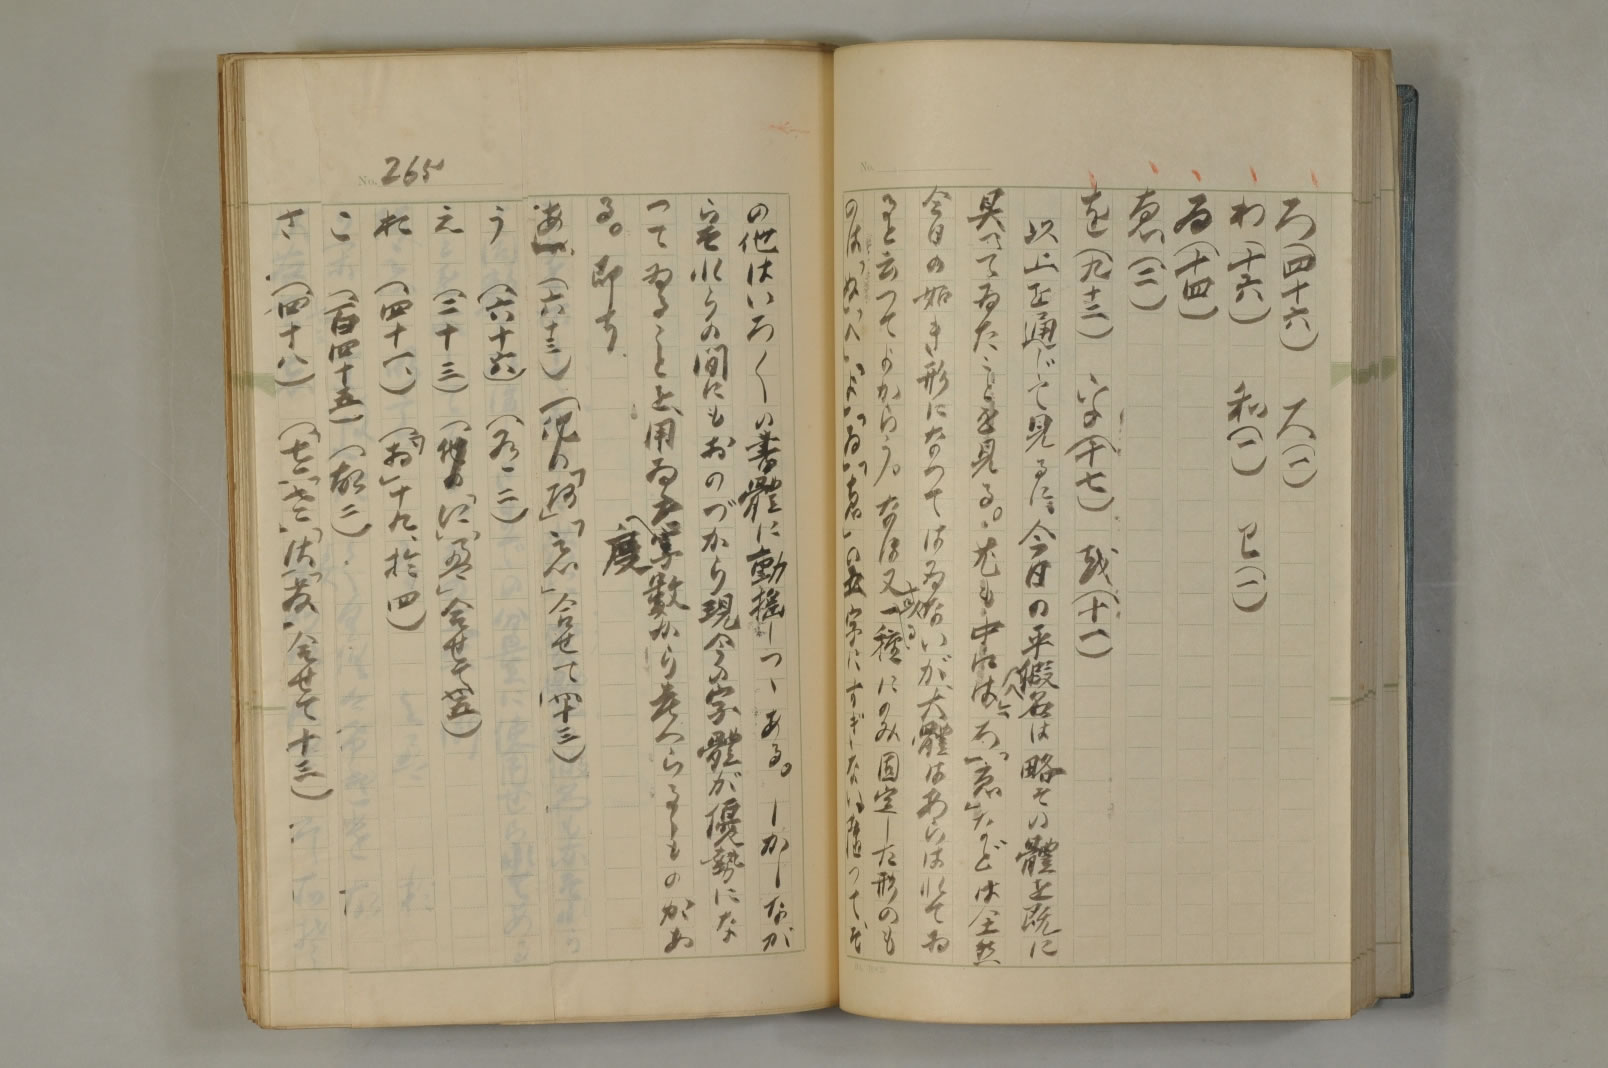 ろ(四十六) 呂(一)
わ(十六) 和(一) 王(一)
ゐ(十四)
ゑ(二)
を(九十二) 乎(十七) 越(十一)
以上を通じて見るに、今日の平假名は略その體を既に
具へてゐたことを見る。尤も中には「ろ」「ゑ」などは全然
今日の如き形になつてはゐないが、大體はあらはれてゐ
ると云つてよからう。なほ又一種にのみ固定した形のも
のは、「ぬ」「へ」「よ」「ゐ」「ゑ」の五字にすぎない。隨つてそ
No. 265
の他はいろ〳〵の書體に動搖しつゝある。しかしなが
らそれらの間にもおのづから現今の字體が優勢にな
つてゐることを、用ゐ字數から考へらるゝものがあ
度
る。即ち
あ(六十三)(他の「阿」「悪」合せて四十三)
う(六十六)(有二)
え(二十三)(他の「江」「盈」合せて五)
れ(四十一)
こ(百四十五)(故二)
さ(四十八)
No.